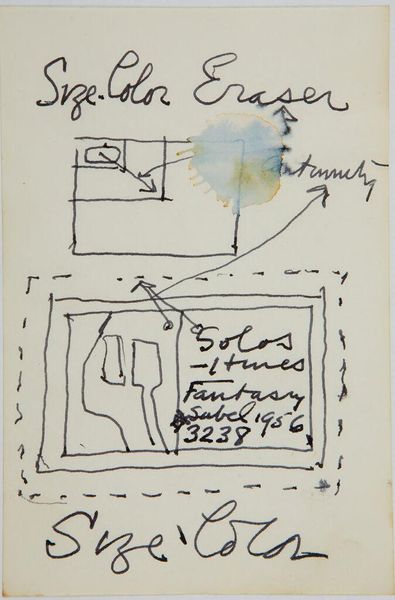 Size-Color Eraser
Solos
Fantasy
Sabel 1956
3238
Size-Color